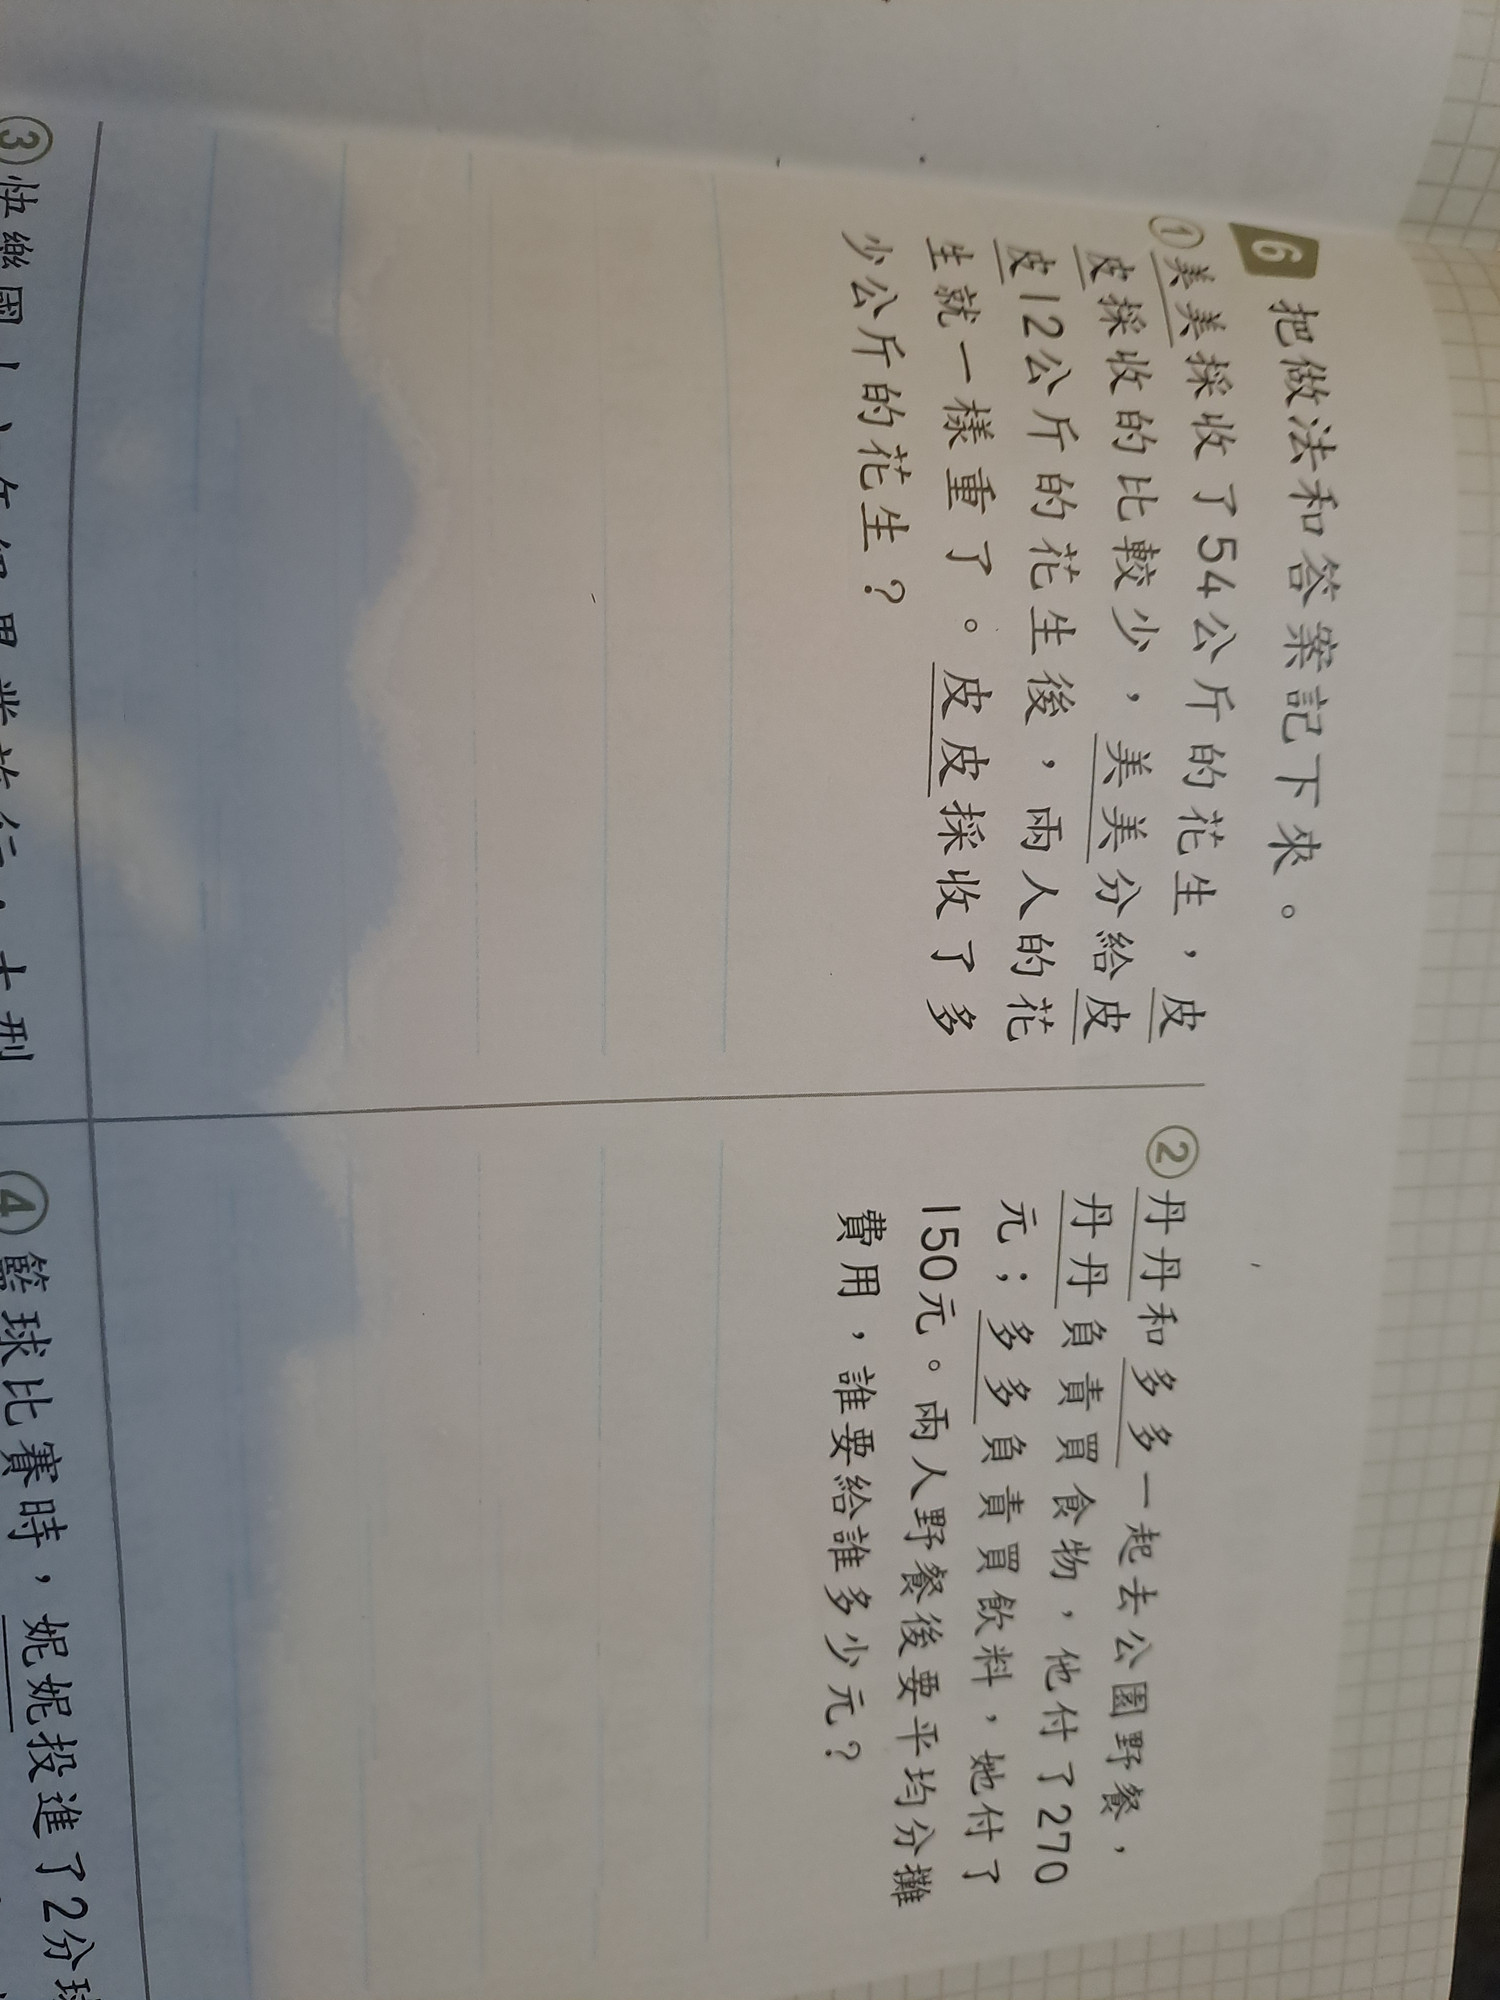 6 把做法和答案記下來。
①美美採收了54公斤的花生，皮
皮採收的比較少，美美分給皮
皮12公斤的花生後，兩人的花
生就一樣重了。皮皮採收了多
少公斤的花生？
②丹丹和多多一起去公園野餐，
丹丹負責買食物，他付了270
元；多多負責買飲料，她付了
150元。兩人野餐後要平均分攤
費用，誰要給誰多少元？
③快樂國小六年級畢業旅行，
④籃球比賽時，妮妮投進了2分球